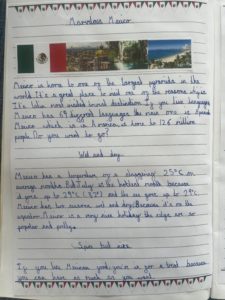 Marvelous Mexico
Mexico is home to one of the largest pyramids in the
world. It's a great place to visit one of the reasons why is
It's Latin most visited tourist destination. If you love languages
Mexico has 69 different languages the main one is Spanish
which is in Mexico is home to 126 million
people. Do you want to go?
Wet and dry
Mexico has a temperature of a staggering 25°C on
average months. But July is the hottest month because
it goes up to 29°C and the sea goes up to 29°C.
Mexico has two seasons wet and dry. Because it's on the
equator. Mexico is a very nice holiday the edges are so
popular and pretty.
Spicy but nice
If you like Mexican food you're in for a treat because
you can have as much as you want.